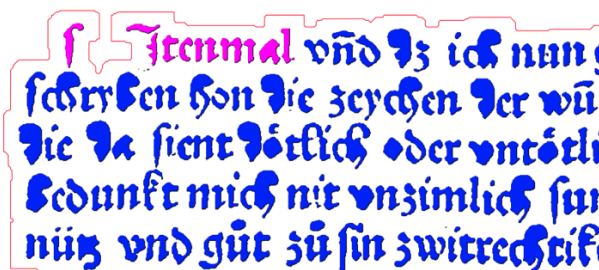 s Jtenmal vn̄d dz ich nun
schryben hon die zeychen der wū
die da sient doͤtlich oder vntoͤtli
bedunkt mich nit vnzimlich sun
nütz vnd guͦt zuͦ sin zwitrechtike